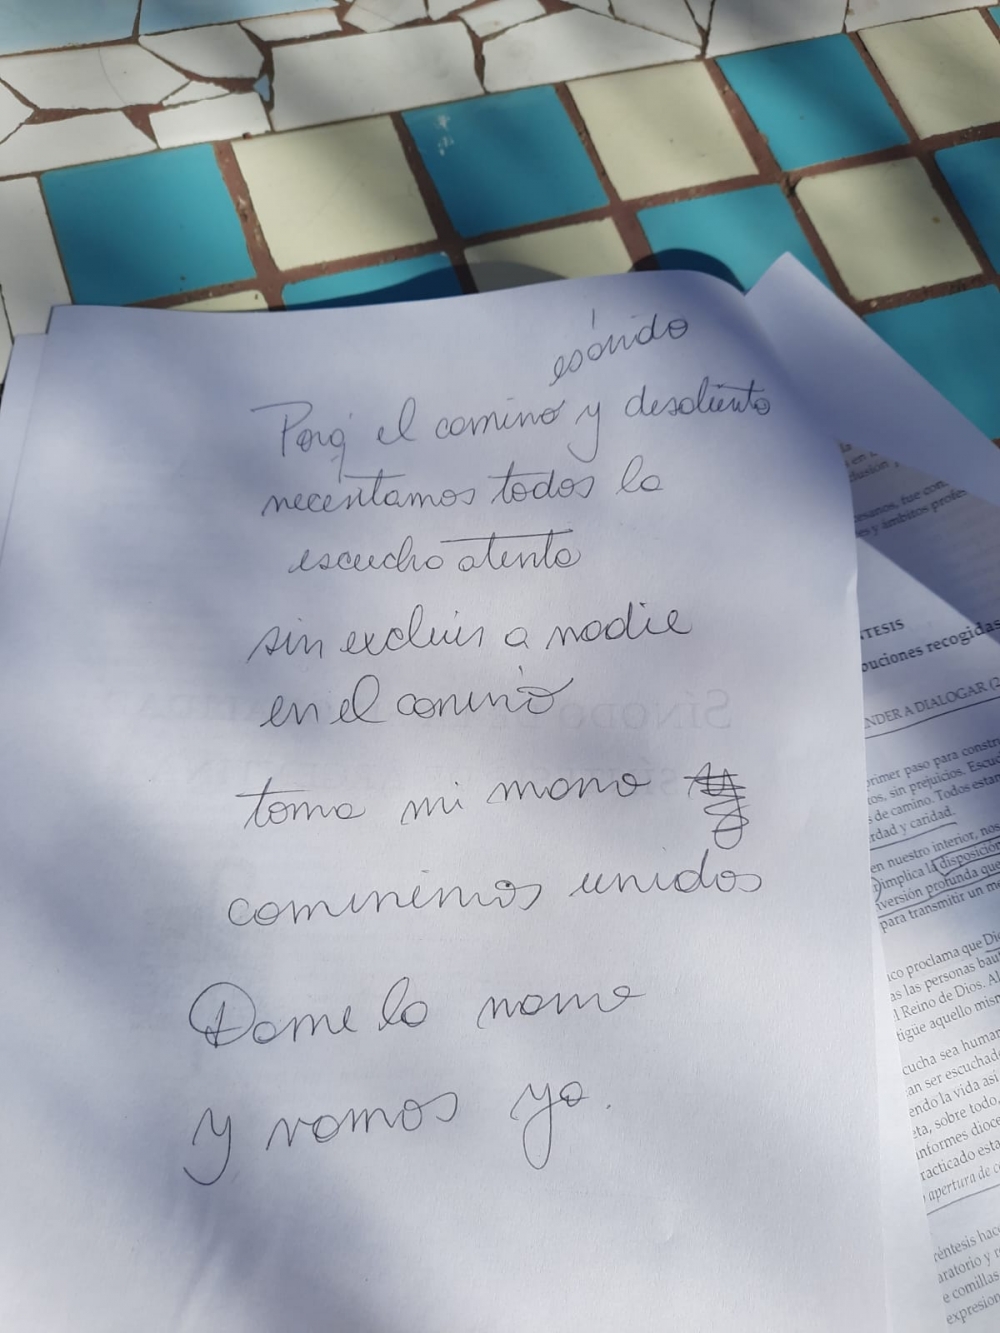 es árido
Porq' el camino y desaliento
necesitamos todos la
escucha atenta
sin excluir a nadie
en el camino
toma mi mano
caminemos unidos
Dame la mano
y vamos ya.
SÍNODO
TESIS
uciones recogidas
NDER A DIALOGAR (2
primer paso para constr
tos, sin prejuicios. Escu
s de camino. Todos esta
rdad y caridad.
en nuestro interior, nos
implica la disposición
versión profunda que
para transmitir un me
ico proclama que Di
as las personas bau
l Reino de Dios. Al
tigüe aquello mism
cucha sea human
an ser escuchad
endo la vida así
eta, sobre todo,
informes dioce
racticado esta
apertura de c
réntesis hac
aratorio y r
e comillas
expresion